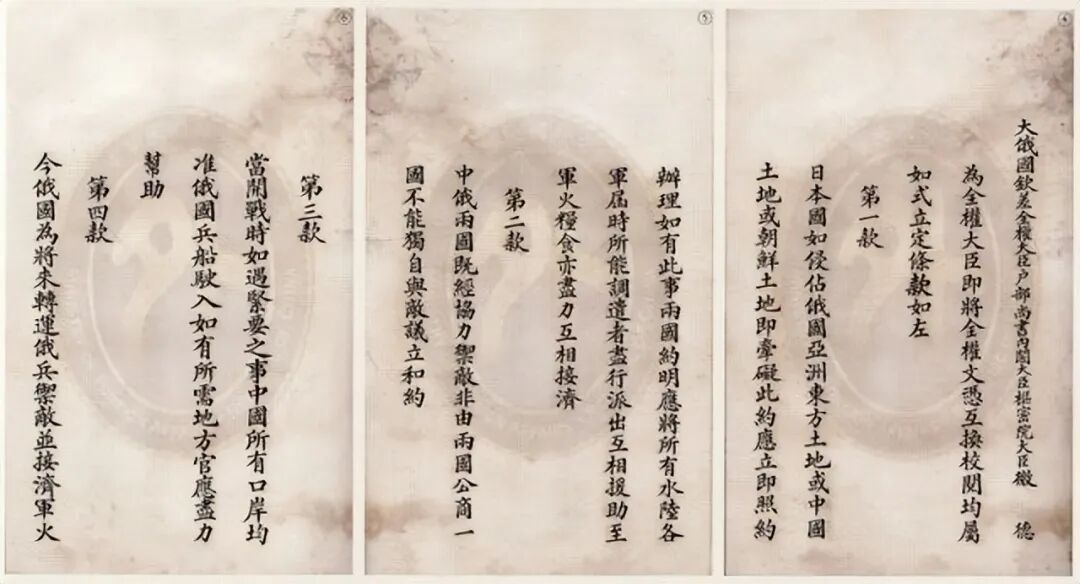 大俄國欽差全權大臣户部尚書内閣大臣樞密院大臣微 德
為全權大臣即將全權文憑互換校閱均屬
如式立定條款如左
第一款
日本國如侵佔俄國亞洲東方土地或中國
土地或朝鮮土地即牽礙此約應立即照約
⑤
辦理如有此事兩國約明應將所有水陸各
軍屆時所能調遣者盡行派出互相援助至
軍火糧食亦盡力互相接濟
第二款
中俄兩國既經協力禦敵非由兩國公商一
國不能獨自與敵議立和約
⑥
第三款
當開戰時如遇緊要之事中國所有口岸均
准俄國兵船駛入如有所需地方官應盡力
幫助
第四款
今俄國為將來轉運俄兵禦敵並接濟軍火